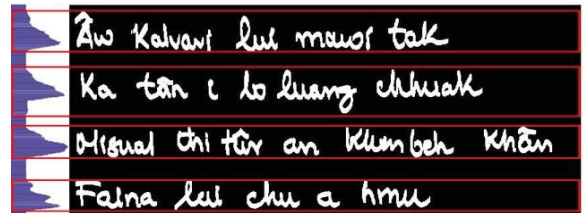 Âw Kalvari lui mawi tak
Ka tân i lo luang chhuak
Misual thi tûr an khenbeh khân
Faina lui chu a hmu